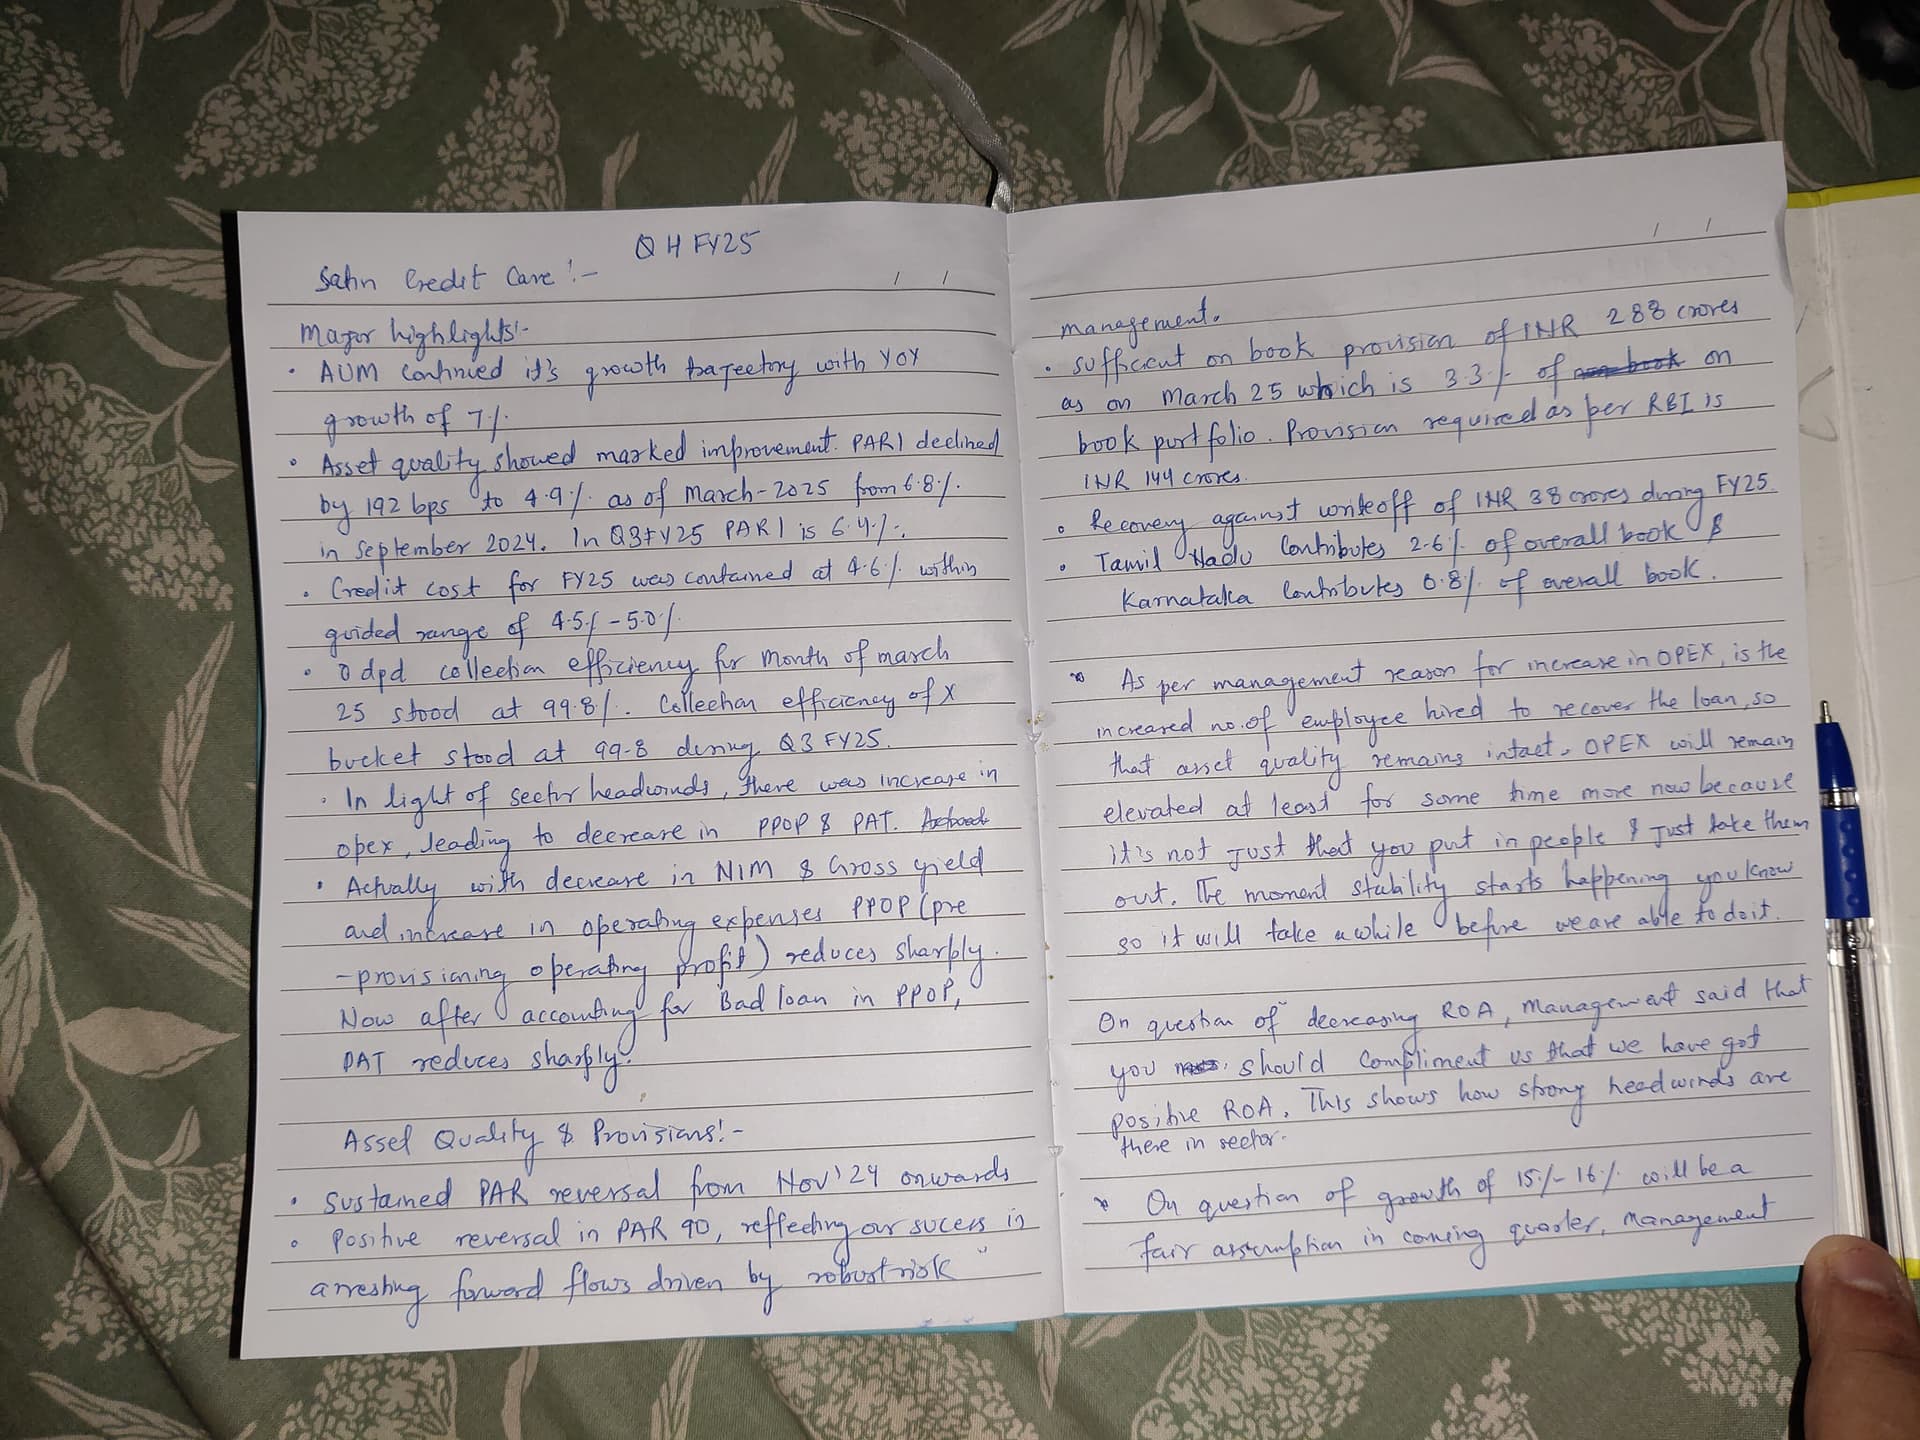 Q4 FY25
Satin Credit Care :-
/ /
Major highlights:-
• AUM continued it's growth trajectory with YOY
growth of 7%.
• Asset quality showed marked improvement. PAR1 declined
by 192 bps to 4.9% as of March-2025 from 6.8%.
in September 2024. In Q3FY25 PAR1 is 6.4%.
• Credit cost for FY25 was contained at 4.6% within
guided range of 4.5% - 5.0%.
• 0 dpd collection efficiency for Month of march
25 stood at 99.8%. Collection efficiency of X
bucket stood at 99.8 during Q3 FY25.
• In light of sector headwinds, there was increase in
opex, leading to decrease in PPOP & PAT.
• Actually with decrease in NIM & Gross yield
and increase in operating expenses PPOP (pre
-provisioning operating profit) reduces sharply.
Now after accounting for Bad loan in PPOP,
PAT reduces sharply.
Asset Quality & Provisions:-
• Sustained PAR reversal from Nov'24 onwards
• Positive reversal in PAR 90, reflecting our sucess in
arresting forward flows driven by robust risk
/ /
management.
• Sufficent on book provision of INR 288 crores
as on March 25 which is 3.3% of book on
book portfolio. Provision required as per RBI is
INR 144 crores.
• Recovery against writeoff of INR 38 crores during FY25.
• Tamil Nadu Contributes 2.6% of overall book &
Karnataka Contributes 0.8% of overall book.
* As per management reason for increase in OPEX, is the
increased no. of employee hired to recover the loan, so
that asset quality remains intact. OPEX will remain
elevated at least for some time more now because
it's not just that you put in people & just take them
out. The moment stability starts happening you know
so it will take a while before we are able to do it.
On question of decreasing ROA, Management said that
you should compliment us that we have got
positive ROA. This shows how strong headwinds are
there in sector.
* On question of growth of 15% - 16% will be a
fair assumption in coming quarter, Management